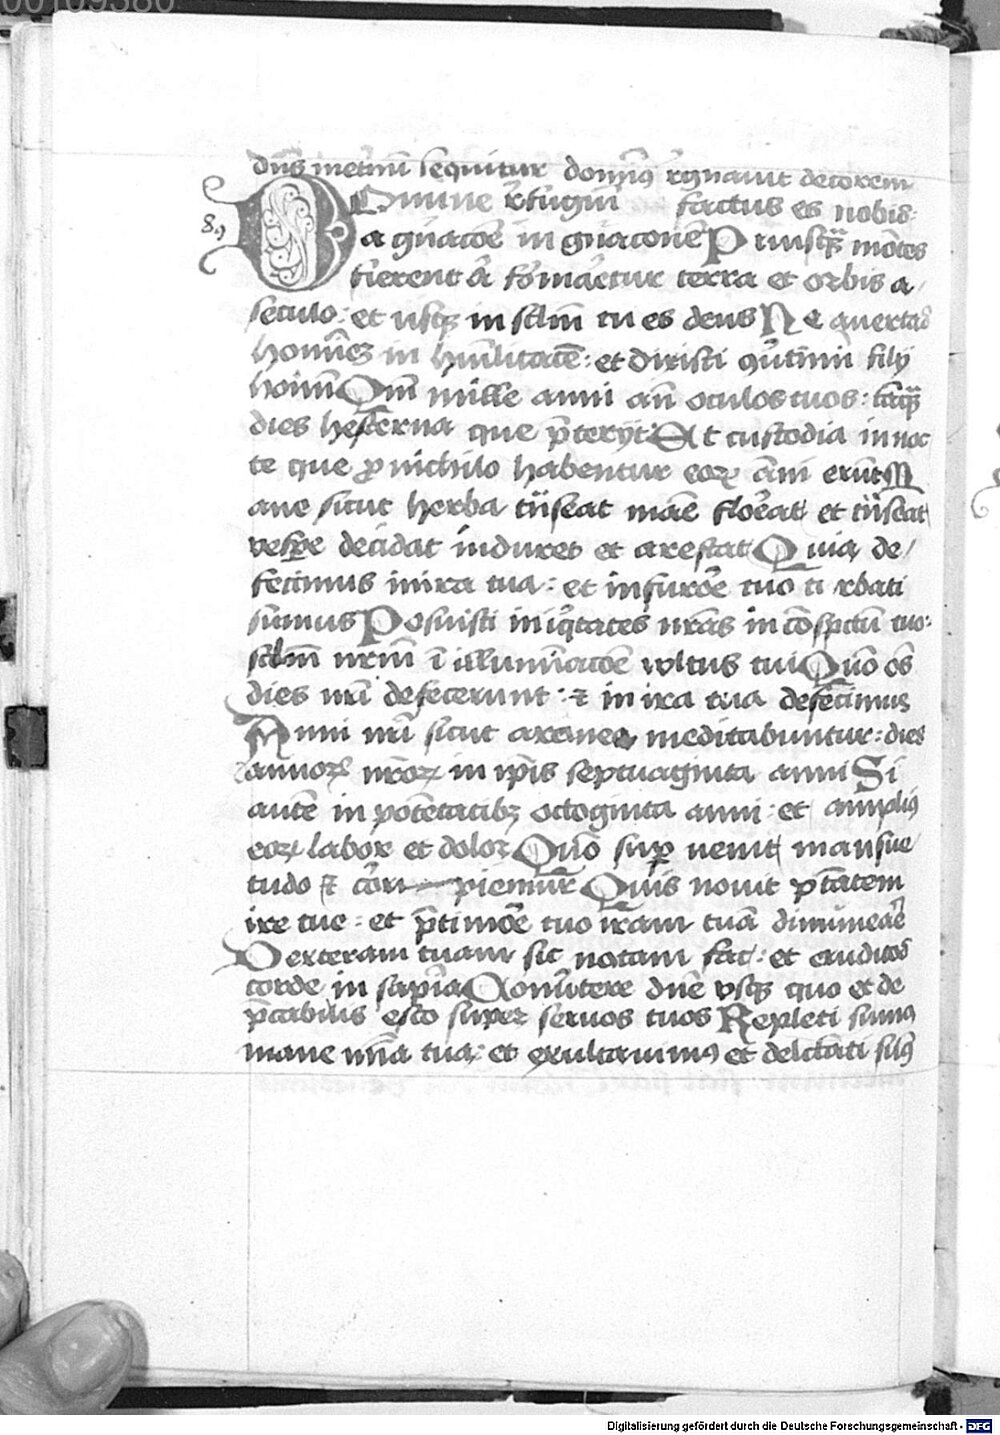 00109380
dn̄s metimū sequitur domin̄9 r̄gnauit decorem
Domine r̄fugiū factus es nobis:
89
a gn̄acōe in gn̄aconē Priusq̄ȝ mōtes
fierent ār formāretur terra et orbis a /
seculo: et usqȝ in sc̄lm̄ tu es deus Ne auertas
hoīnēȝ in hūīlitatē: et dixisti 9ūtīmī filij
hoīm̄ Qm̄ mille anni an̄ oculos tuos: tāqȝ
dies hesterna que p̄terijt Et custodia in noc
te que pro nichilo habentur eoꝝ āni erūt M
ane sicut herba trāseat māe floreat et trāseat
vespe decidat induret et arescat Quia de /
fecimus in ira tua: et in furoē tuo t rbati
sumus Posuisti iniq̄tates nr̄as in cōspctū tuo:
sc̄lm̄ nrm̄ ī illuminacōe vltus tui Qūo os̄
dies nr̄i defecerunt: ⁊ in ira tua defecimus
Anni nr̄i sicut aranee meditabuntur: dies
annoꝝ nr̄oꝝ in ip̄is septuaginta anni Si
autē in potētatibȝ octoginta anni: et amplius
eoꝝ labor et dolor Qūo sup uenit mansue
tudo ⁊ cōri piemur̄ Quis nouit p̄tatem
ire tue: et p̄ timoē tuo iram tuā dinumeaē
Dexteram tuam sic notam fac: et eruditos
corde in sapīa Conuūtere dn̄e vsqȝ quo et de
p̄cabilis esto super seruos tuos Repleti sumus
mane mīa tua: et exultauim9 et delc̄tati sum9
Digitalisierung gefördert durch die Deutsche Forschungsgemeinschaft - DFG